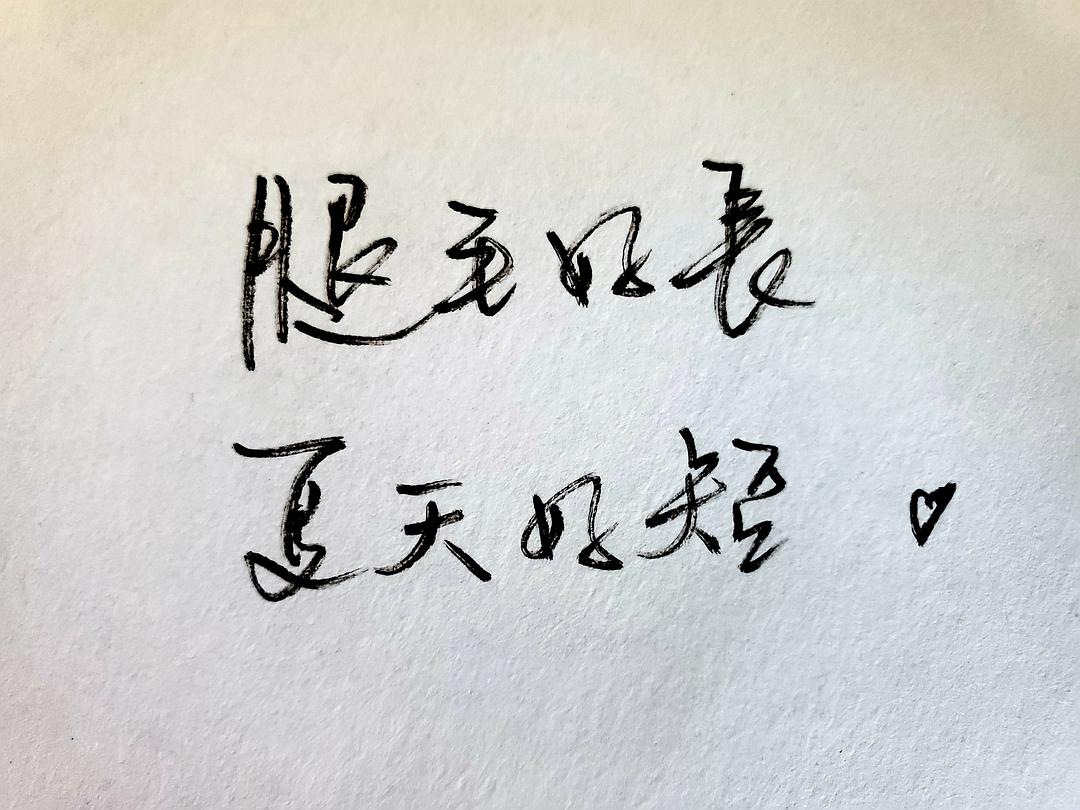 腿毛好長
夏天好短 ♡